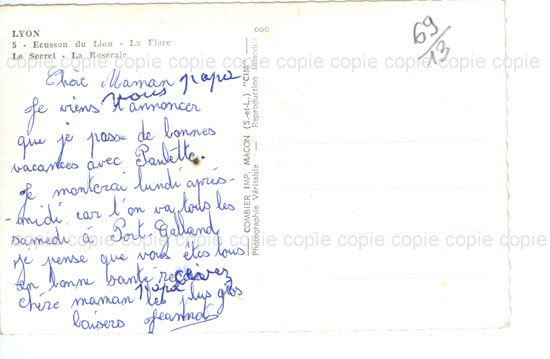 LYON
5 - Ecusson du Lion - La Flore
Le Secret - La Roseraie
ooo
69/13
copie copie copie copie copie copie copie copie copie copie
Chère Maman papa
Je viens vous t'annoncer
que je passe de bonnes
vacances avec Paulette.
Je monterai lundi après-
-midi car l'on va tous les
samedi à Port-Galland
copie copie copie copie copie copie copie copie copie copie
Je pense que vous êtes tous
en bonne santé recevez
chère maman papa les plus gros
baisers Jeannot
COMBIER IMP. MACON (S.-et-L.) "CIM"
Photographie Véritable - Reproduction Interdite